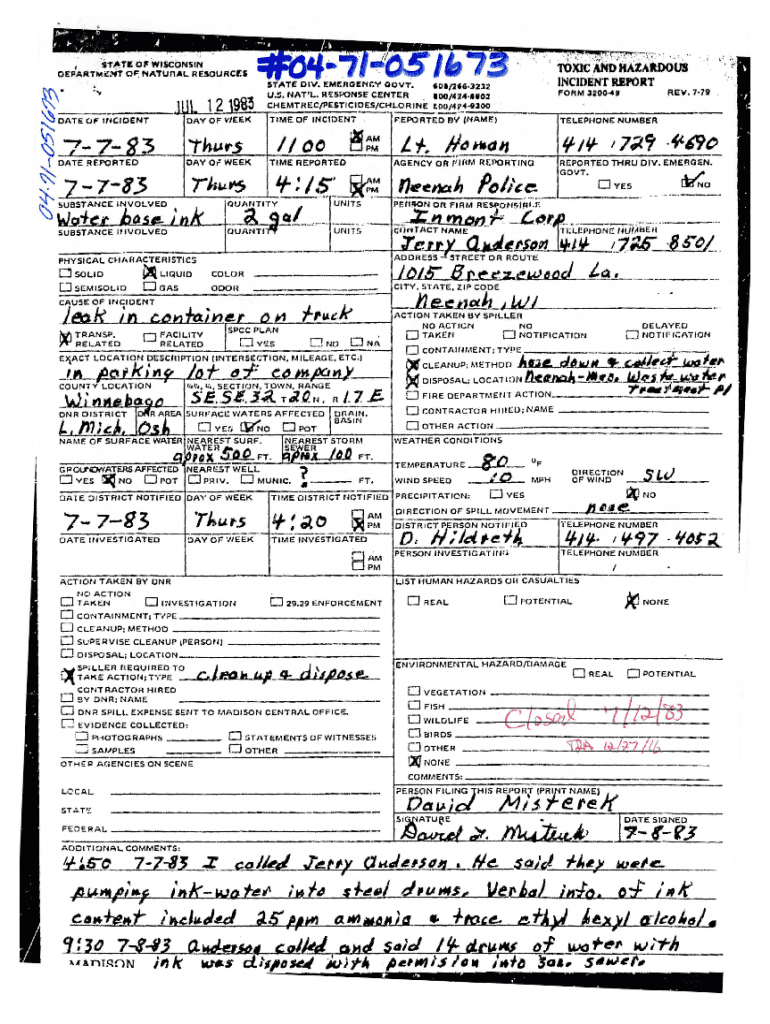 #04-71-051673
STATE OF WISCONSIN
DEPARTMENT OF NATURAL RESOURCES
STATE DIV. EMERGENCY GOVT. 608/266-3232
U.S. NAT'L. RESPONSE CENTER 800/424-8802
CHEMTREC/PESTICIDES/CHLORINE 800/424-9300
TOXIC AND HAZARDOUS
INCIDENT REPORT
FORM 3200-49 REV. 7-79
JUL 12 1983
04-71-051673
DATE OF INCIDENT DAY OF WEEK TIME OF INCIDENT REPORTED BY (NAME) TELEPHONE NUMBER
7-7-83 Thurs 1100 X AM PM Lt. Homan 414 729 4690
DATE REPORTED DAY OF WEEK TIME REPORTED AGENCY OR FIRM REPORTING REPORTED THRU DIV. EMERGEN. GOVT.
7-7-83 Thurs 4:15 AM X PM Neenah Police YES X NO
SUBSTANCE INVOLVED QUANTITY UNITS PERSON OR FIRM RESPONSIBLE
Water base ink 2 gal Inmont Corp
SUBSTANCE INVOLVED QUANTITY UNITS CONTACT NAME TELEPHONE NUMBER
Jerry Anderson 414 725 8501
PHYSICAL CHARACTERISTICS ADDRESS - STREET OR ROUTE
SOLID X LIQUID COLOR 1015 Breezewood La.
SEMISOLID GAS ODOR CITY, STATE, ZIP CODE
Neenah, WI
CAUSE OF INCIDENT
leak in container on truck
ACTION TAKEN BY SPILLER
X TRANSP. RELATED FACILITY RELATED SPCC PLAN YES NO NA
NO ACTION TAKEN NO NOTIFICATION DELAYED NOTIFICATION
EXACT LOCATION DESCRIPTION (INTERSECTION, MILEAGE, ETC.)
in parking lot of company
CONTAINMENT; TYPE
X CLEANUP; METHOD hose down & collect water
COUNTY LOCATION ¼¼, ¼, SECTION, TOWN, RANGE
Winnebago SE, SE, 32 T20 N, R 17 E
X DISPOSAL; LOCATION Neenah-Men. Waste water treatment pl
FIRE DEPARTMENT ACTION
CONTRACTOR HIRED; NAME
OTHER ACTION
DNR DISTRICT DNR AREA SURFACE WATERS AFFECTED DRAIN. BASIN
L. Mich. Osh YES X NO POT
NAME OF SURFACE WATER NEAREST SURF. WATER NEAREST STORM SEWER
aprox 500 FT. aprox 100 FT.
WEATHER CONDITIONS
TEMPERATURE 80 °F
GROUNDWATERS AFFECTED NEAREST WELL
YES X NO POT PRIV. MUNIC. ? FT.
WIND SPEED 10 MPH DIRECTION OF WIND SW
PRECIPITATION: YES X NO
DATE DISTRICT NOTIFIED DAY OF WEEK TIME DISTRICT NOTIFIED
7-7-83 Thurs 4:20 AM X PM
DIRECTION OF SPILL MOVEMENT none
DISTRICT PERSON NOTIFIED TELEPHONE NUMBER
D. Hildreth 414 497 4052
DATE INVESTIGATED DAY OF WEEK TIME INVESTIGATED AM PM
PERSON INVESTIGATING TELEPHONE NUMBER
/
ACTION TAKEN BY DNR LIST HUMAN HAZARDS OR CASUALTIES
NO ACTION TAKEN INVESTIGATION 29.29 ENFORCEMENT REAL POTENTIAL X NONE
CONTAINMENT; TYPE
CLEANUP; METHOD
SUPERVISE CLEANUP (PERSON)
DISPOSAL; LOCATION
X SPILLER REQUIRED TO TAKE ACTION; TYPE clean up & dispose
CONTRACTOR HIRED BY DNR; NAME
DNR SPILL EXPENSE SENT TO MADISON CENTRAL OFFICE.
EVIDENCE COLLECTED:
PHOTOGRAPHS STATEMENTS OF WITNESSES
SAMPLES OTHER
ENVIRONMENTAL HAZARD/DAMAGE
REAL POTENTIAL
VEGETATION
FISH
WILDLIFE
BIRDS
OTHER
X NONE
COMMENTS:
Closed 7/12/83
12/27/16
OTHER AGENCIES ON SCENE
LOCAL
STATE
FEDERAL
PERSON FILING THIS REPORT (PRINT NAME)
David Misterek
SIGNATURE DATE SIGNED
David J. Misterek 7-8-83
ADDITIONAL COMMENTS:
4:50 7-7-83 I called Jerry Anderson. He said they were
pumping ink-water into steel drums. Verbal info. of ink
content included 25 ppm ammonia & trace ethyl hexyl alcohol.
9:30 7-8-83 Anderson called and said 14 drums of water with
MADISON ink was disposed with permission into san. sewer.